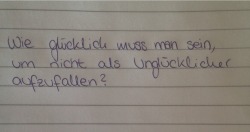 Wie glücklich muss man sein,
um nicht als Unglücklicher
aufzufallen?